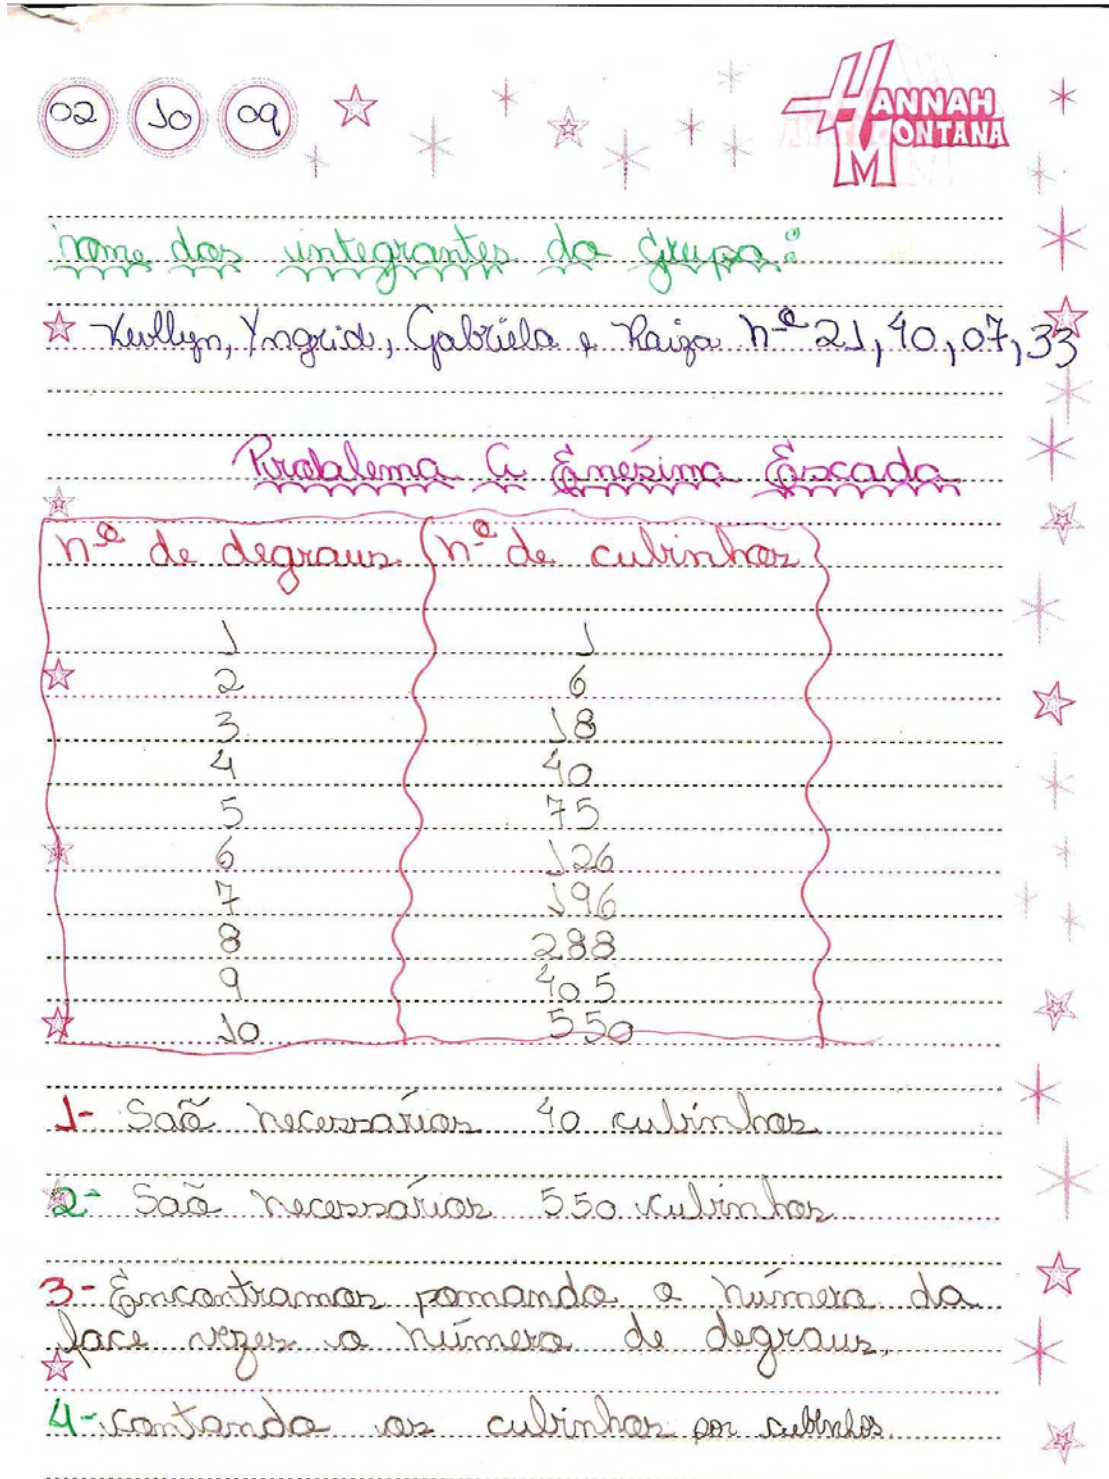 02 10 09
HANNAH MONTANA
nome dos integrantes do Grupo:
Kevllyn, Yngrid, Gabriela e Raiza nº 21, 40, 07, 33
Problema A Enésima Escada
nº de degraus nº de cubinhos
1 1
2 6
3 18
4 40
5 75
6 126
7 196
8 288
9 405
10 550
1- Saõ necessárias 40 cubinhos
2- Saõ necessárias 550 cubinhos
3- Encontramos somando o número da
face vezes o número de degraus.
4- contando os cubinhos por cubinhos.